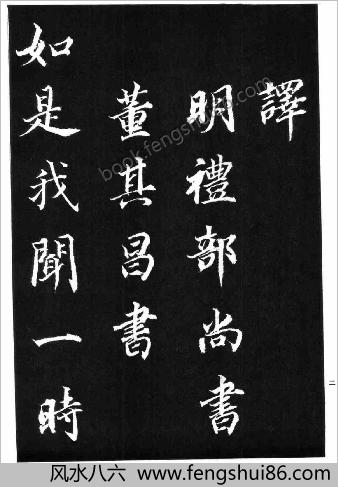 譯
明禮部尚書
董其昌書
如是我聞一時
二
book.fengshui86.com
风水八六 www.fengshui86.com